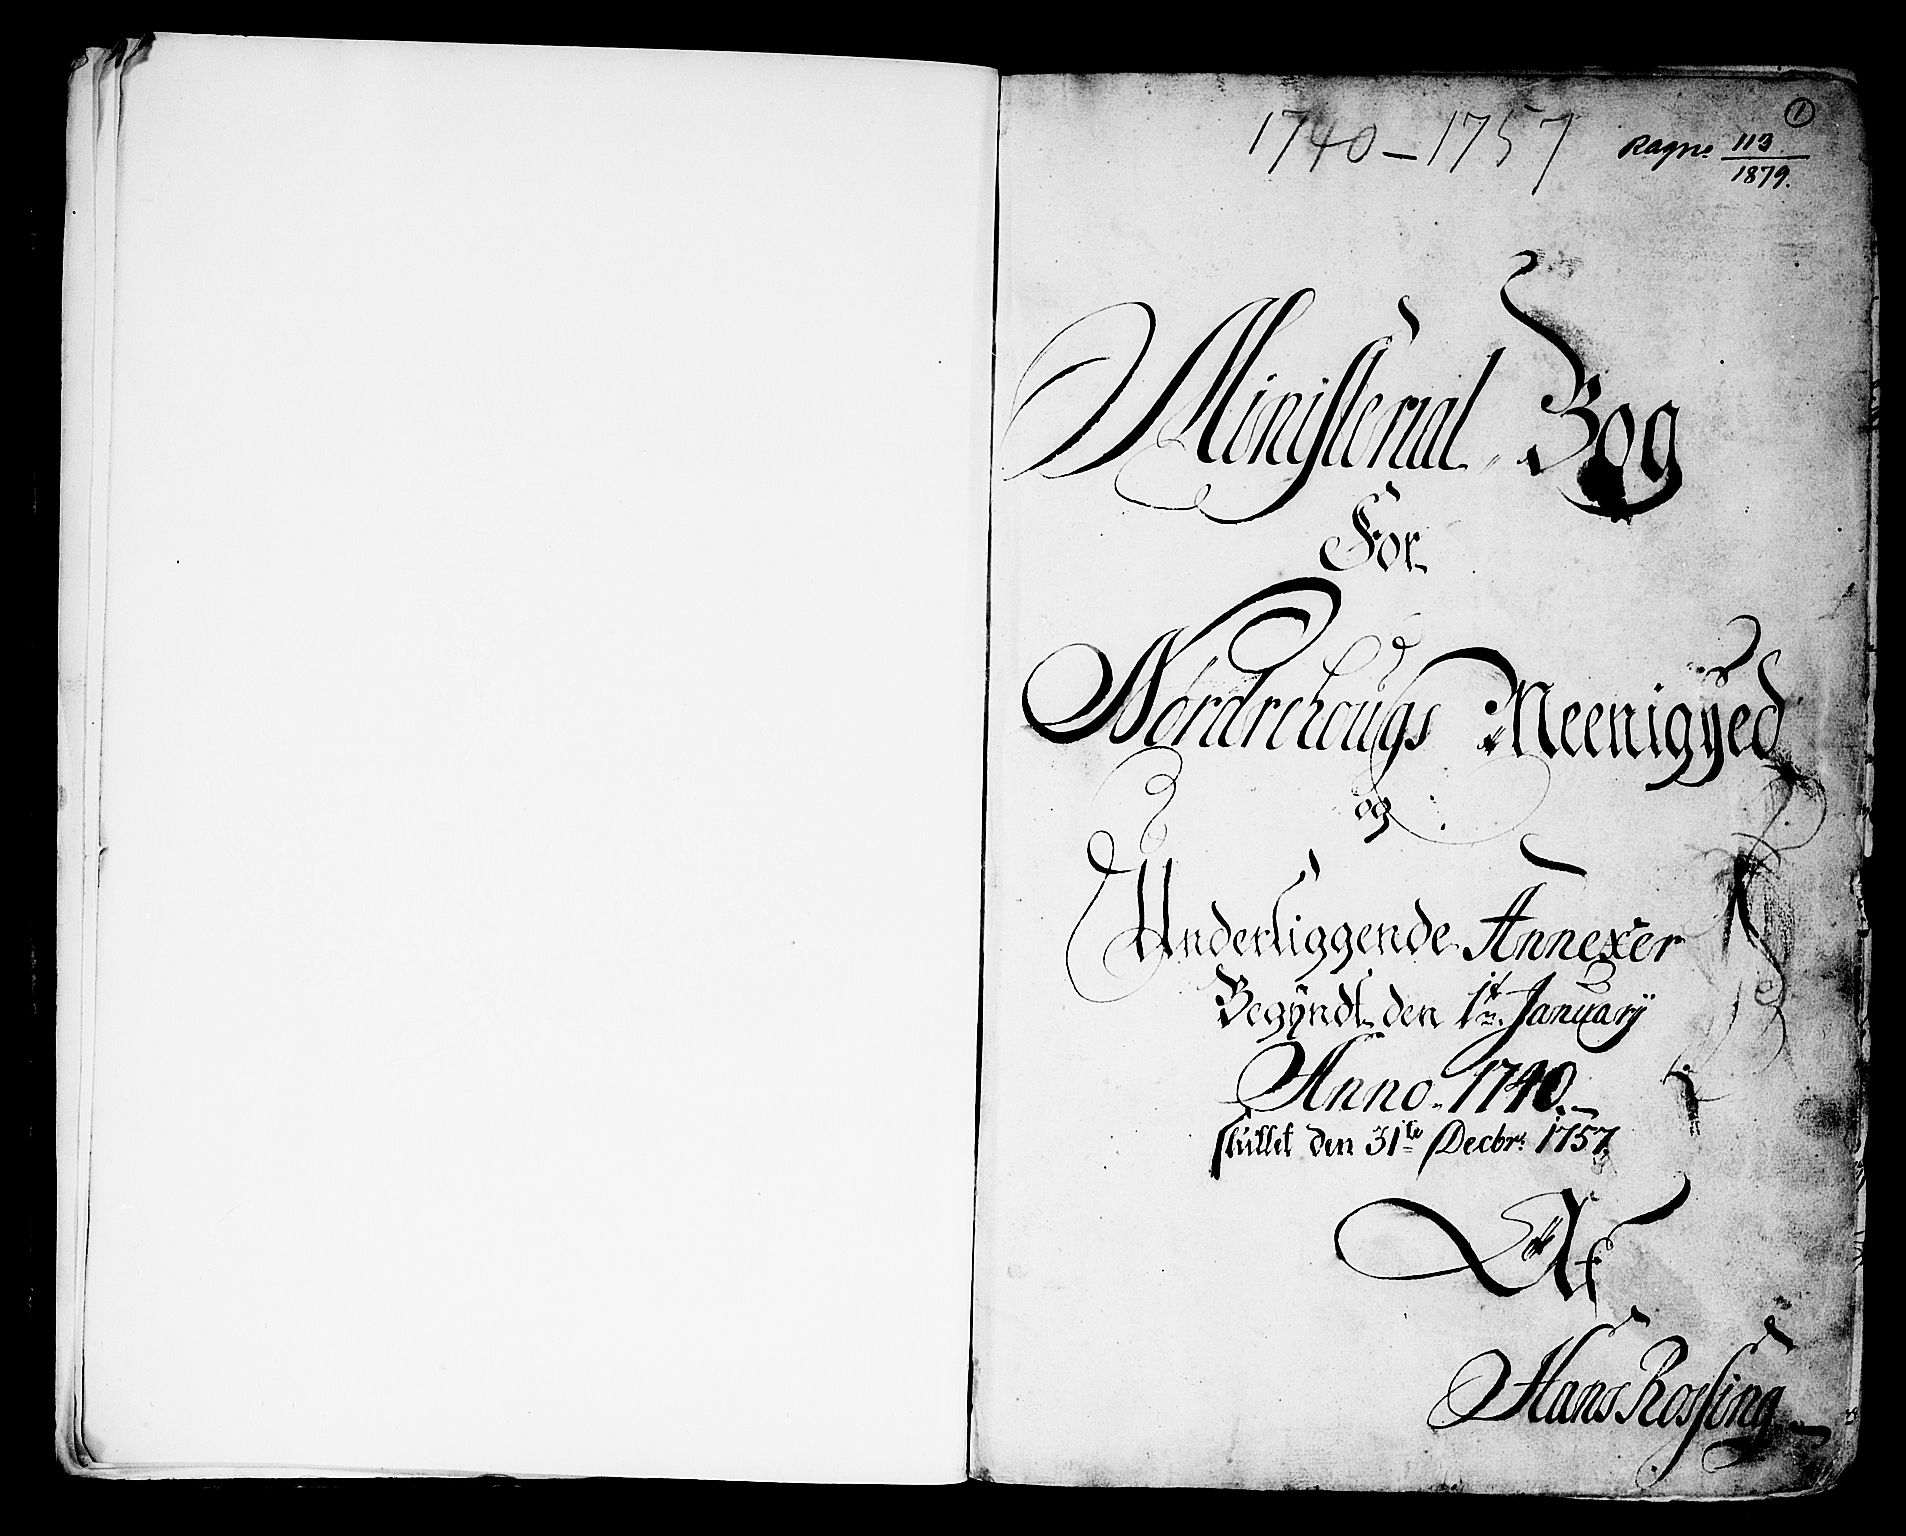 1
1740 – 1757
113
1879.
Ministerial Bog
For
Nordrehougs Meenigyed
og
Underliggende Annexer
Begÿndt den 1st January
Anno 1740.
sluttet den 31te Decbr: 1757.
Af
Hans Rossing